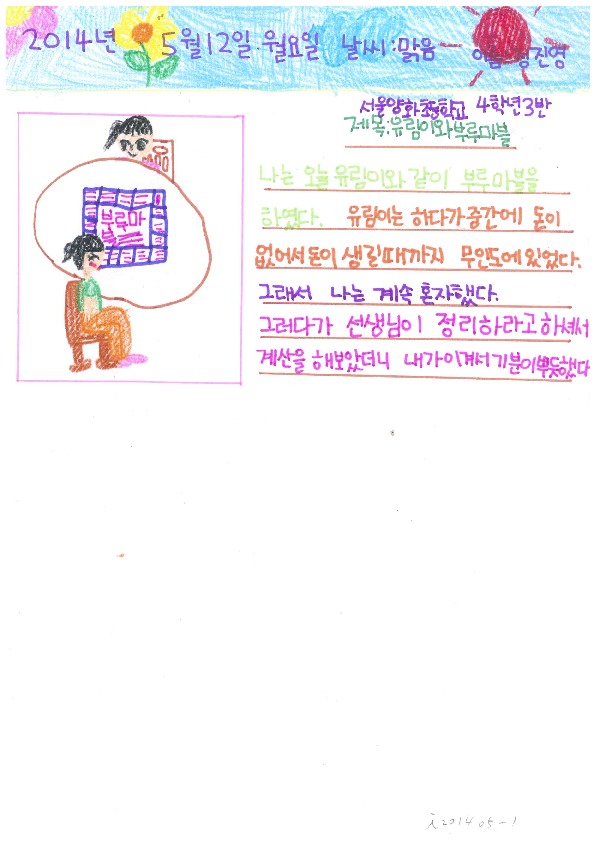 2014년 5월 12일. 월요일 날씨:맑음 이름:정진영
서울양화초등학교 4학년 3반
제목:유림이와 부루마블
나는 오늘 유림이와 같이 부루마블을
하였다. 유림이는 하다가 중간에 돈이
없어서 돈이 생길때까지 무인도에 있었다.
그래서 나는 계속 혼자했다.
그러다가 선생님이 정리하라고 하셔서
계산을 해보았더니 내가 이겨서 기분이 뿌듯했다
부루마
2014 05-1